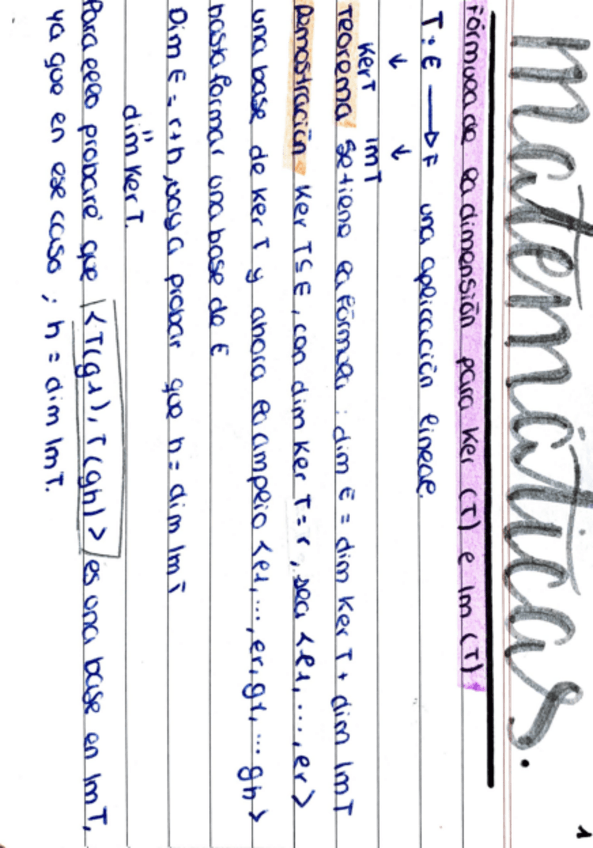 1
matemáticas.
Fórmula de la dimensión para Ker (T) e Im (T)
T: E → F una aplicación lineal.
↓ ↓
KerT ImT
Teorema Se tiene la fórmula: dim E = dim Ker T + dim ImT
Demostración Ker T ≤ E, con dim Ker T = r, sea <e1, ..., er>
una base de Ker T y ahora la amplio <e1, ..., er, g1, ... gh>
hasta formar una base de E
Dim E = r+h, voy a probar que h = dim ImT
"
dim Ker T.
Para ello probaré que |<T(g1), T(gh)>| es una base en ImT,
ya que en ese caso; h = dim ImT.